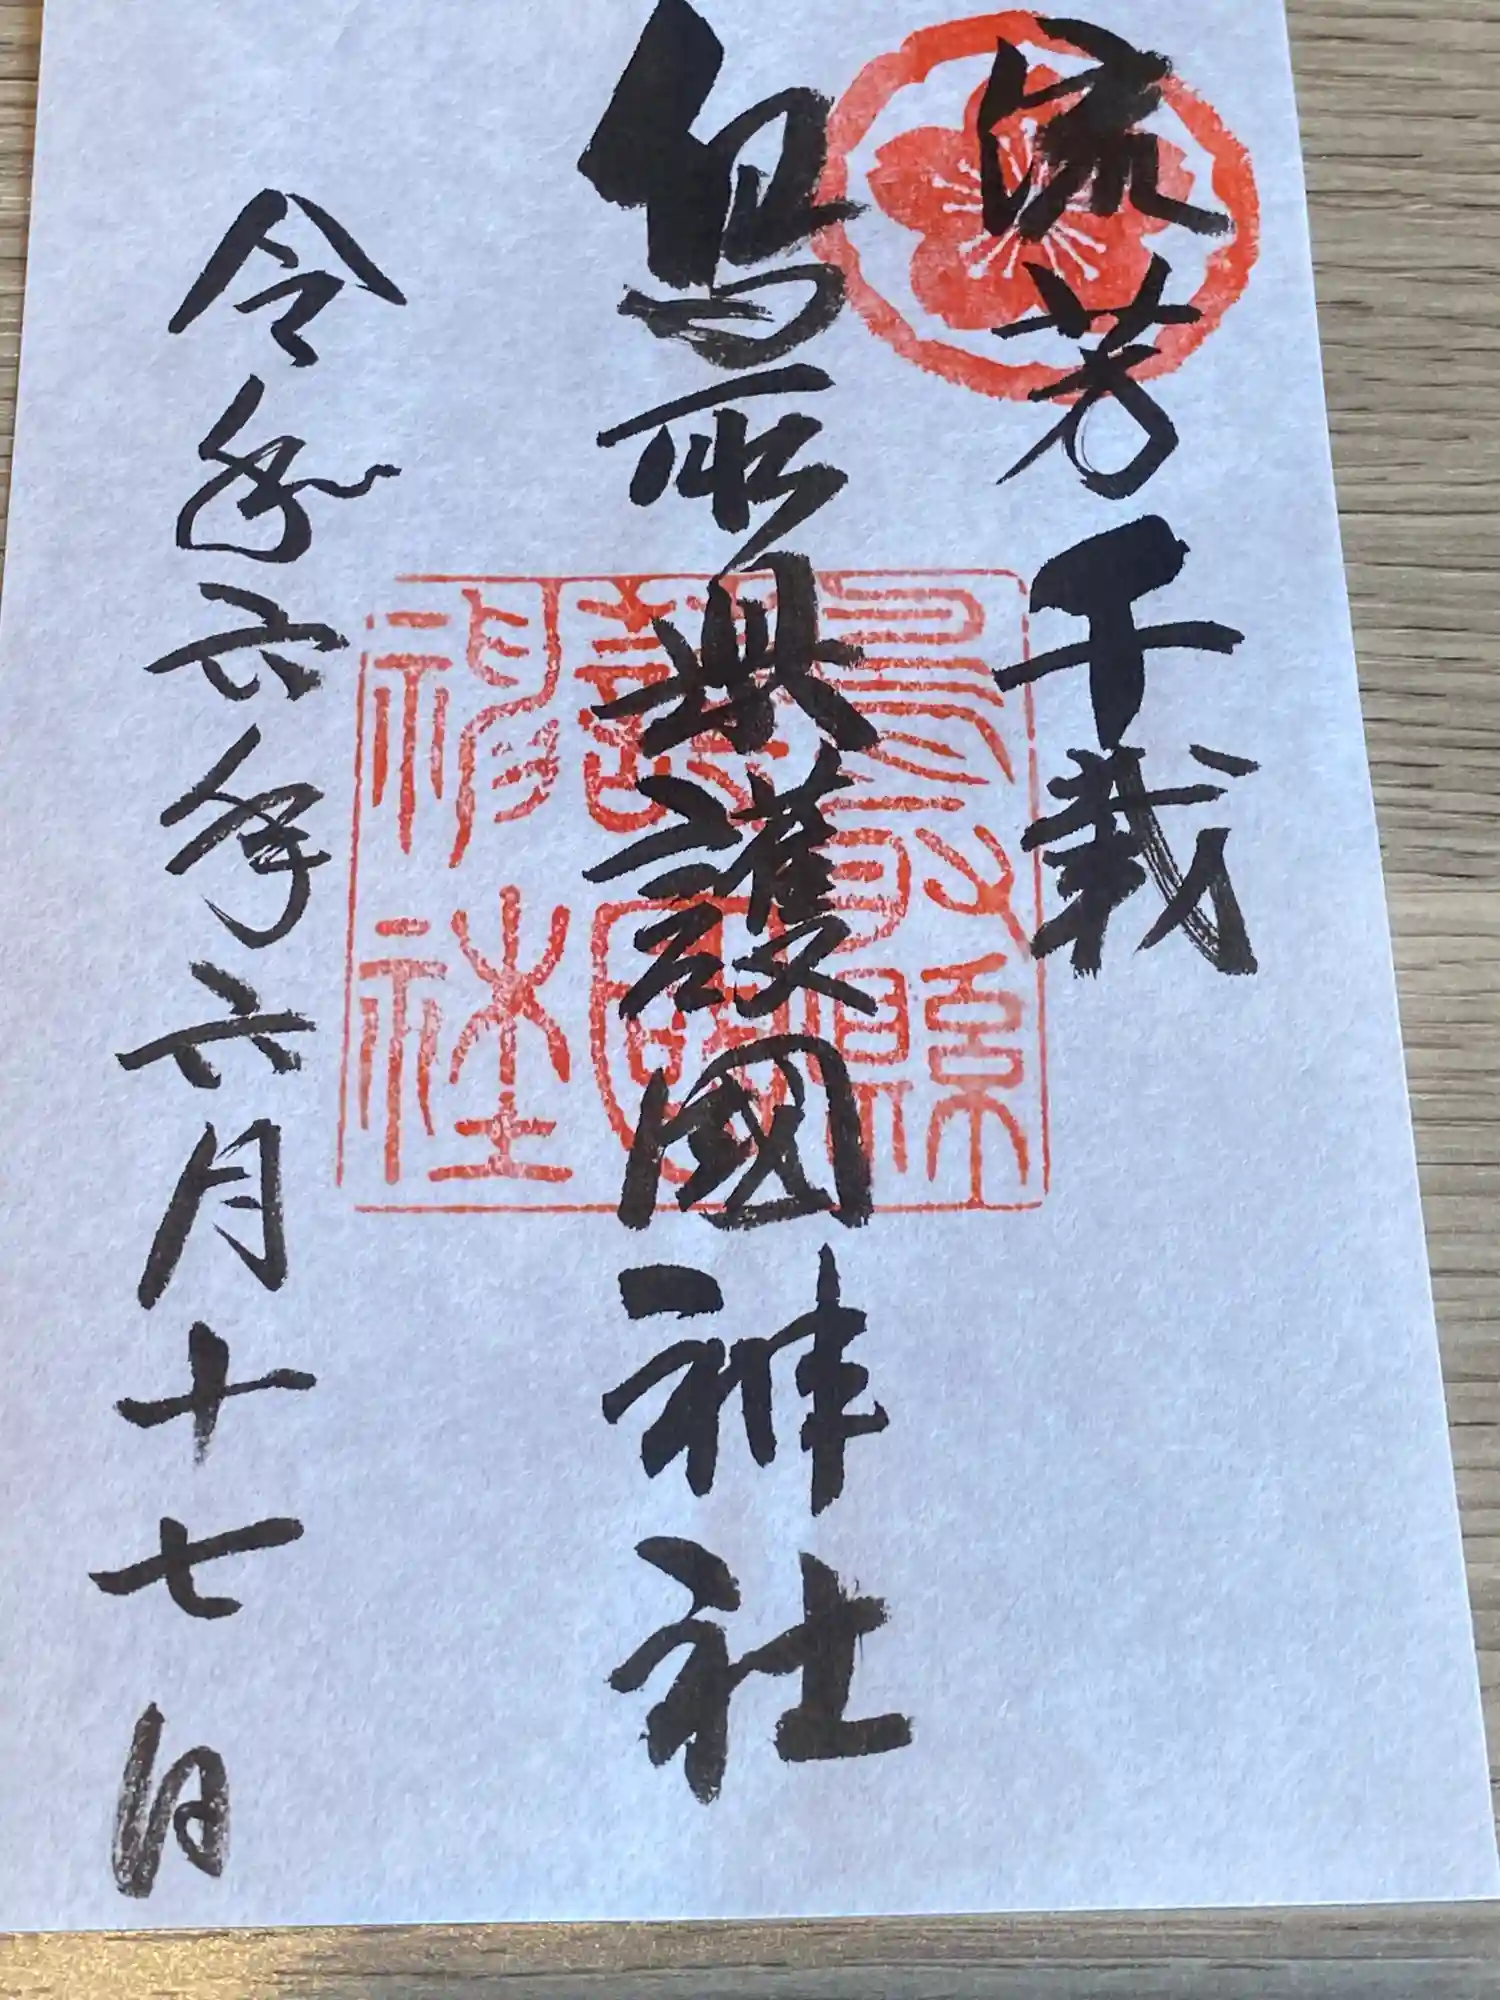 流芳千載
鳥取県護國神社
鳥取縣
護國
神社
令和六年六月十七日